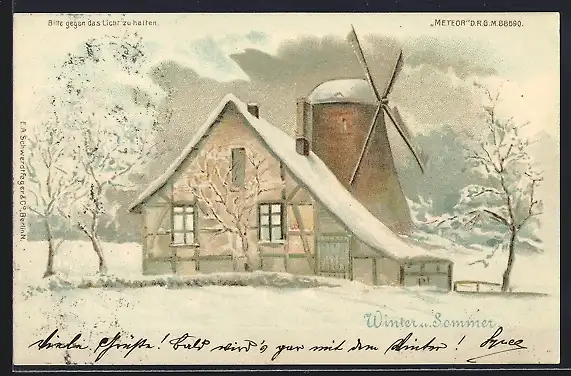 Bitte gegen das Licht zu halten.
„METEOR" D.R.G.M. 88690.
E.A. Schwerdtfeger & Co. Berlin N.
Winter u. Sommer
Viele Grüße! Bald wird's gar mit dem Winter!